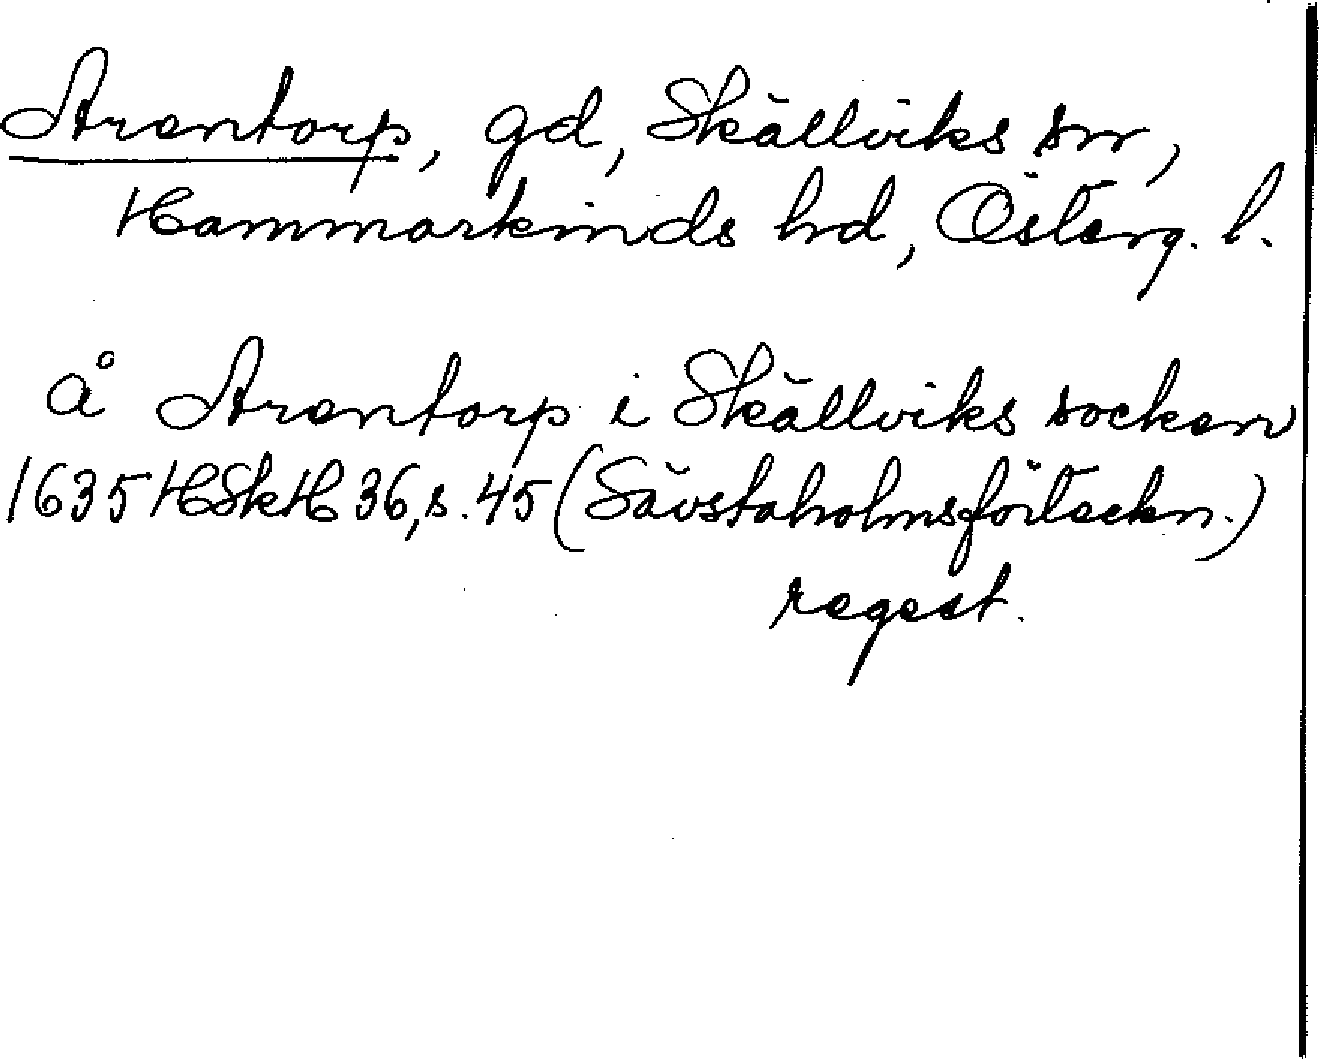 Arentorp, gd, Skällviks sn,
Hammarkinds hd, Österg. l.
å Arentorp i Skällviks socken
1635 HSkH 36, s. 45 (Sävstaholmsförteckn.)
regest.